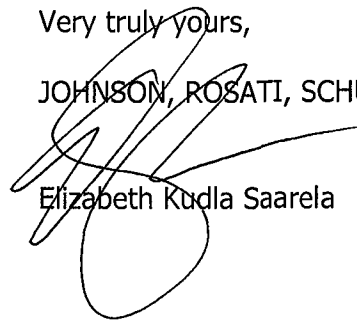 Very truly yours,
JOHNSON, ROSATI, SCHU
Elizabeth Kudla Saarela